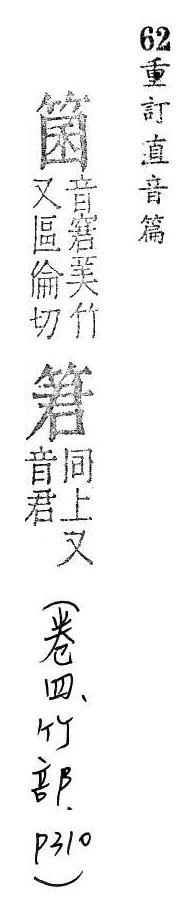 62重訂直音篇
箘
音窘美竹
又區倫切
䇹
同上又
音君
(卷四、竹部.P310)